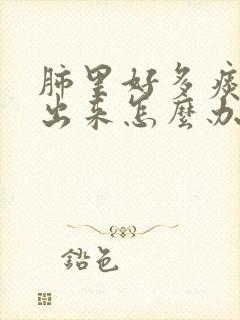 肺里好多痰
出来怎麼办
鉛色